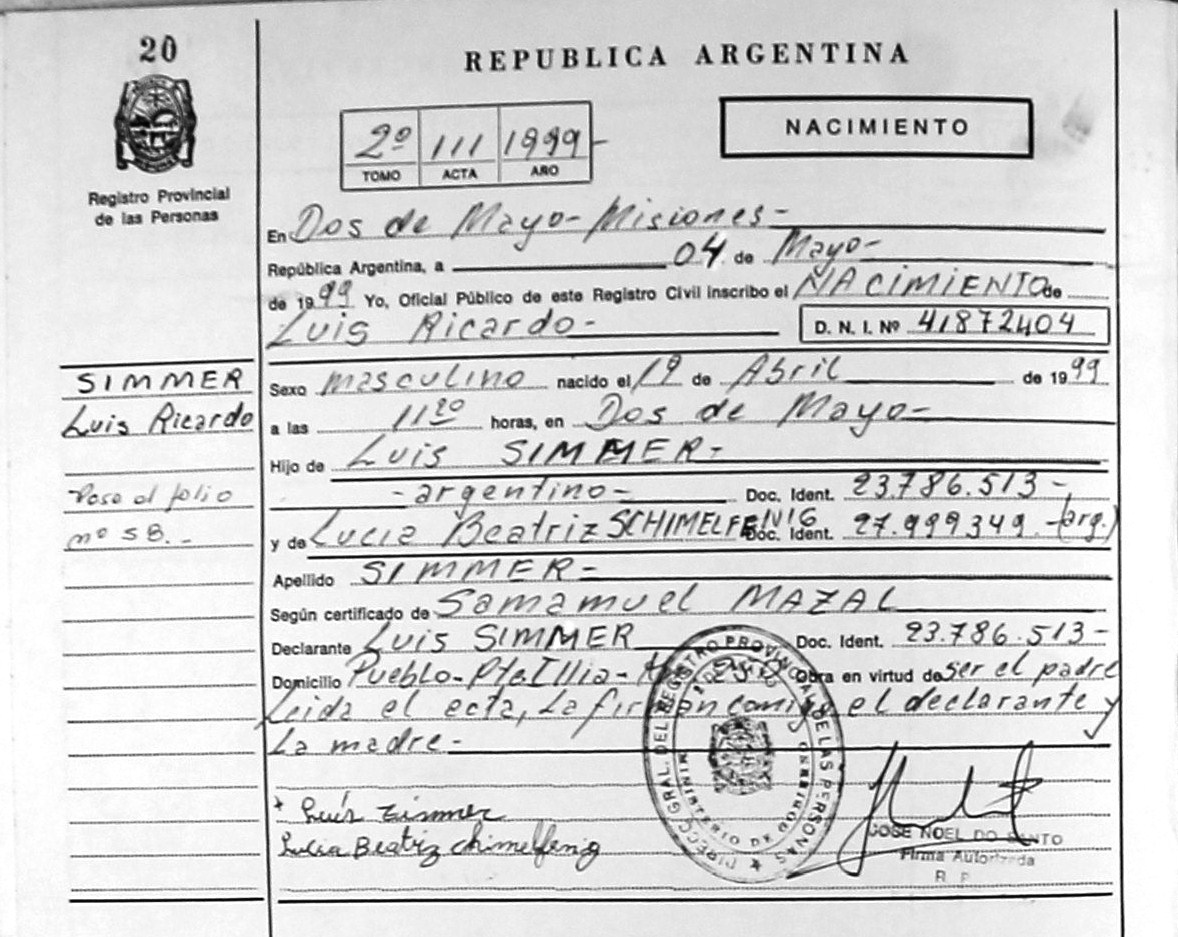 20
REPUBLICA ARGENTINA
Registro Provincial
de las Personas
2º 111 1999-
TOMO ACTA AÑO
NACIMIENTO
En Dos de Mayo - Misiones -
República Argentina, a 04 de Mayo -
de 1999 Yo, Oficial Público de este Registro Civil inscribo el NACIMIENTO de
Luis Ricardo - D. N. I. Nº 41872404
SIMMER
Luis Ricardo
Paso al folio
nº 58.-
Sexo masculino nacido el 19 de Abril de 1999
a las 11 20 horas, en Dos de Mayo -
Hijo de Luis SIMMER -
- argentino - Doc. Ident. 23.786.513 -,
y de Lucia Beatriz SCHIMELFENIG Doc. Ident. 27.999349.- (arg.)
Apellido SIMMER -
Según certificado de Samamuel MAZAL
Declarante Luis SIMMER Doc. Ident. 23.786.513 -
Domicilio Pueblo - Pte. Illia - 25 Obra en virtud de ser el padre
Leida el acta, la firman comigo el declarante y
La madre -
DIRECC. GRAL. DEL REGISTRO PROVINCIAL DE LAS PERSONAS
MINISTERIO DE GOBIERNO
Luis Zimmer
Lucia Beatriz Chimelfenig
JOSE NOEL DO SANTO
Firma Autorizada
R. P.